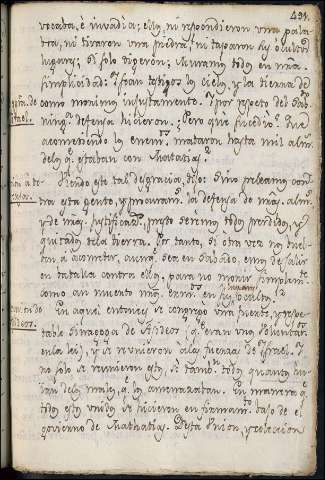 491.
vocaba, è invadia; ellos ni respondieron vna pala-
bra, ni tiraron vna piedra, ni taparon los ocultos
lugares; Si solo digeron; Muramos todos en nra.
simplicidad: y sean testigos los cielos, y la tierra de
como morimos injustamente. Y por respeto del Sab.
ningᵃ defensa hicieron. Pero que sucediò? Que
acometiendo los enemˢ. mataron hasta mil almˢ
de los q. estaban con Mathatias.
Viendo este tal desgracia, dijo: Si no peleamos con-
tra esta gente, y procuramˢ la defensa de nrãs. almˢ.
y de nrãs. justificacˢ. presto seremos todos perdidos, y
quitados de la tierra. Por tanto, si otra vez nos buel-
ban à acometer, aunq. sea en Sabado, emos de salir
en batalla contra ellos, para no morir simplemte.
como an muerto nrõs. hermˢ. en los lugares ocultos.
En aquel entonces se congregò vna fuerte, y respe-
table Sinagoga de Asideos (q. eran vnos voluntarˢ
en la lei) y se reunieron à las fuerzas de Ysrael. Y
no solo se reunieron estos, si tamb. todos quantos hu-
ian de los males, q. los amenazaban. En manera q.
todos estos vnidos se hicieron en firmamto. bajo de el
govierno de Mathatias. Desta Vnion, y coleccion